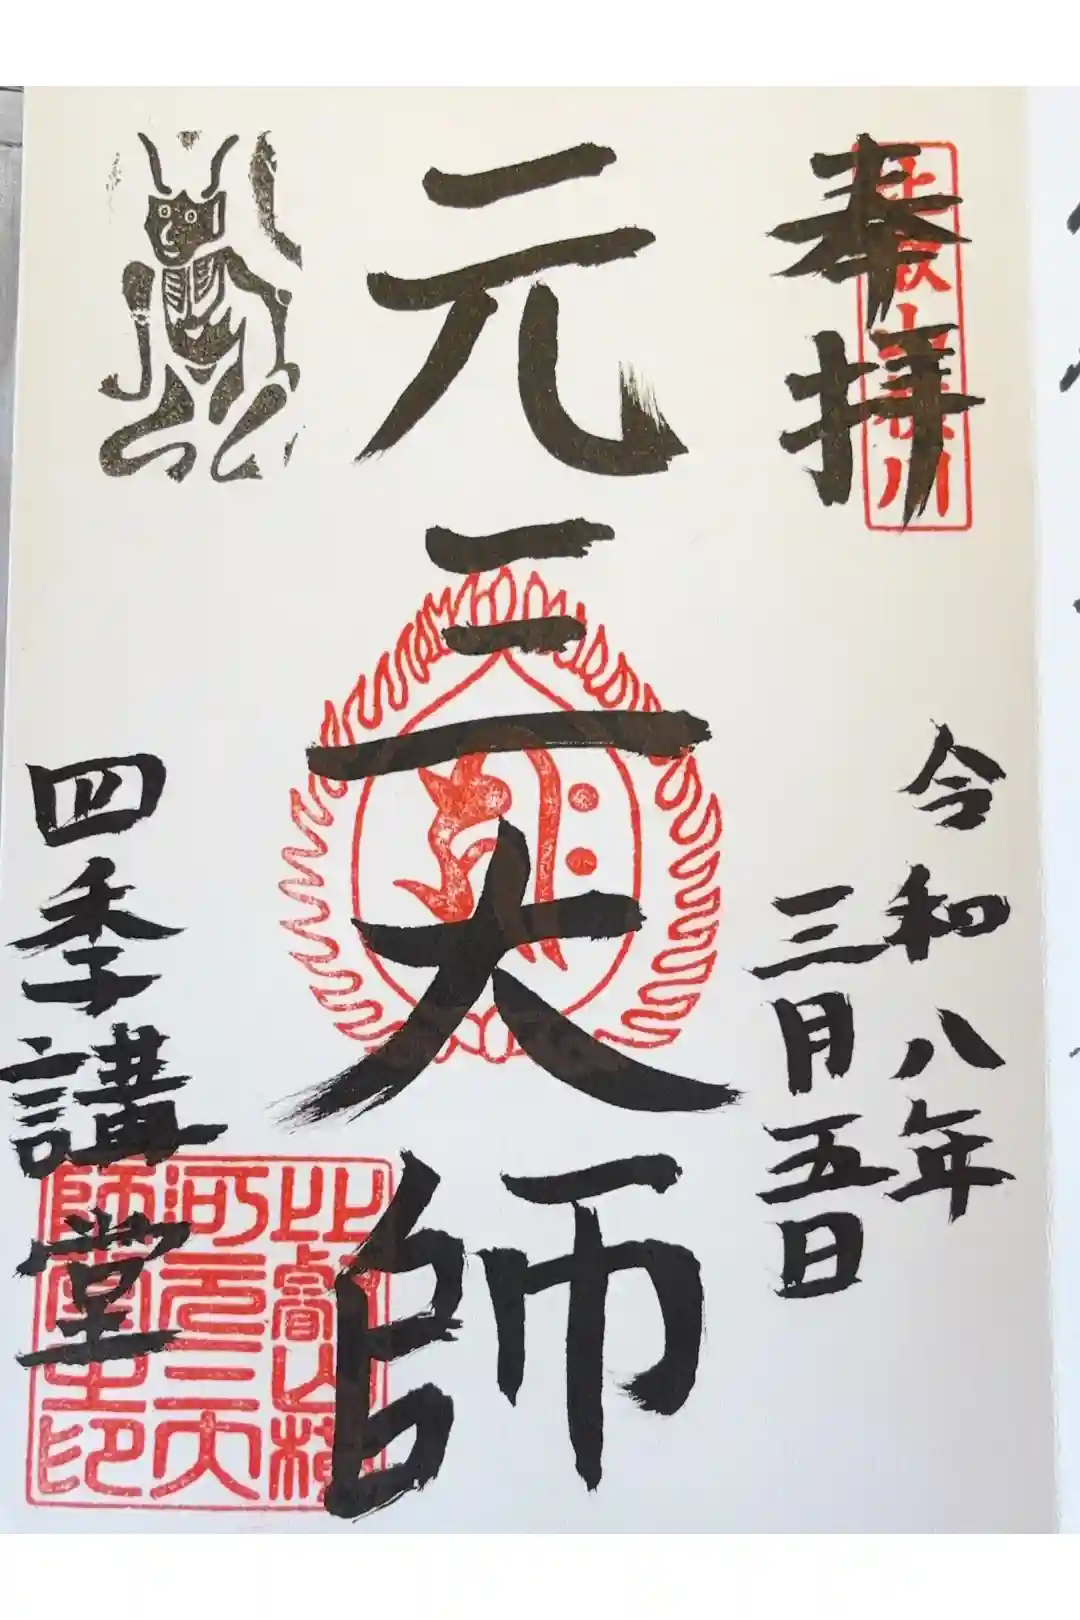 奉拝
比叡山横川
令和八年
三月五日
元三大師
四季講堂
比叡山横
河元三大
師堂印